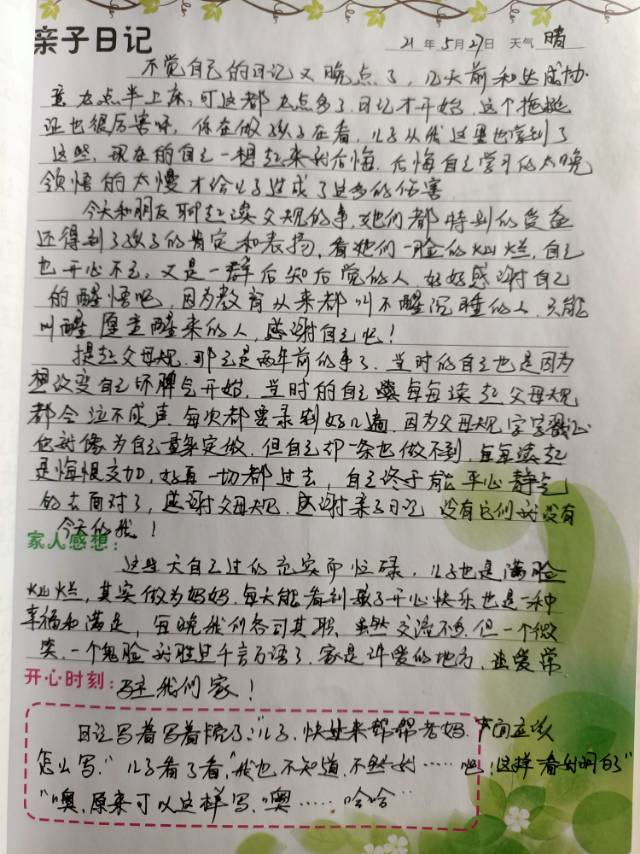 亲子日记 21年5月27日 天气 晴
不觉自己的日记又晚点了,几天前和达成协
意九点半上床,可这都九点多了日记才开始,这个拖延
证也很厉害呀,你在做孩子在看,儿子从我这里也学到了
这些,现在的自己一想起来就后悔,后悔自己学习的太晚
领悟的太慢才给儿子造成了这多的伤害
今天和朋友聊起读父母规的事,她们都特别的受益
还得到了孩子的肯定和表扬,看她们一脸的灿烂,自己
也开心不已,又是一群后知后觉的人,好好感谢自己
的醒悟吧,因为教育从来都叫不醒沉睡的人,只能
叫醒愿意醒来的人,感谢自己吧!
提起父母规,那已是两年前的事了,当时的自己也是因为
想改变自己坏脾气开始,当时的自己每每读起父母规
都会泣不成声,每次都要录制好几遍,因为父母规字字戳心
它就像为自己量身定做,但自己却一条也做不到,每每读起
是悔恨交加,好在一切都过去,自己终于能平心静气
的去面对了,感谢父母规,感谢亲子日记,没有它们就没有
今天的我!
家人感想:
这些天自己过的充实而忙碌,儿子也是满脸
灿烂,其实做为妈妈,每天能看到孩子开心快乐也是一种
幸福和满足,每晚我们各司其职,虽然交流不多,但一个微
笑,一个鬼脸就胜过千言万语了,家是讲爱的地方,且爱常
开心时刻:驻我们家!
日记写着写着卡了:"儿子,快过来帮帮老妈,下面应该
怎么写,"儿子看了看,"我也不知道,不然就……吧,这样看行吗的"
"噢,原来可以这样写,"噢……哈哈"